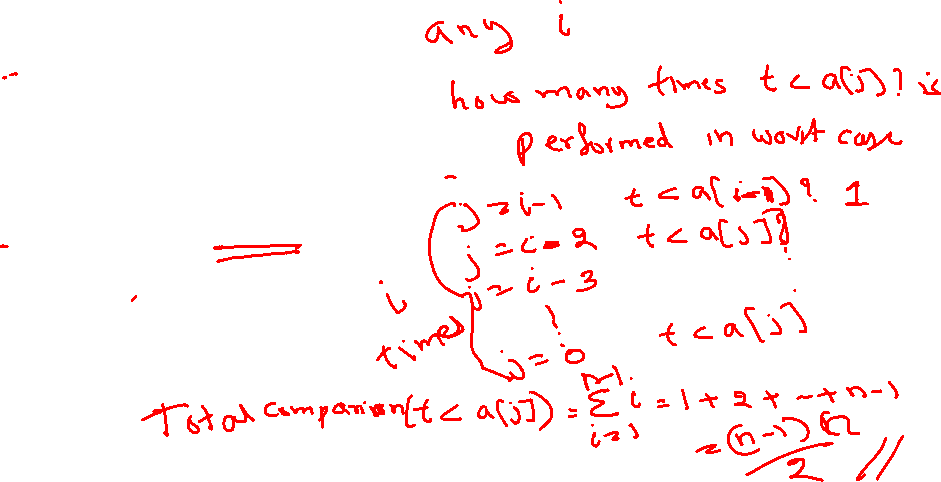 any i
how many times t < a[j]? is
performed in worst case
j = i-1 t < a[i-1]? 1
j = i-2 t < a[j]?
j = i-3
i
times
j = 0 t < a[j]
Total comparison(t < a[j]) = n-1 Σ i=1 i = 1 + 2 + -- + n-1
= (n-1) n / 2 //